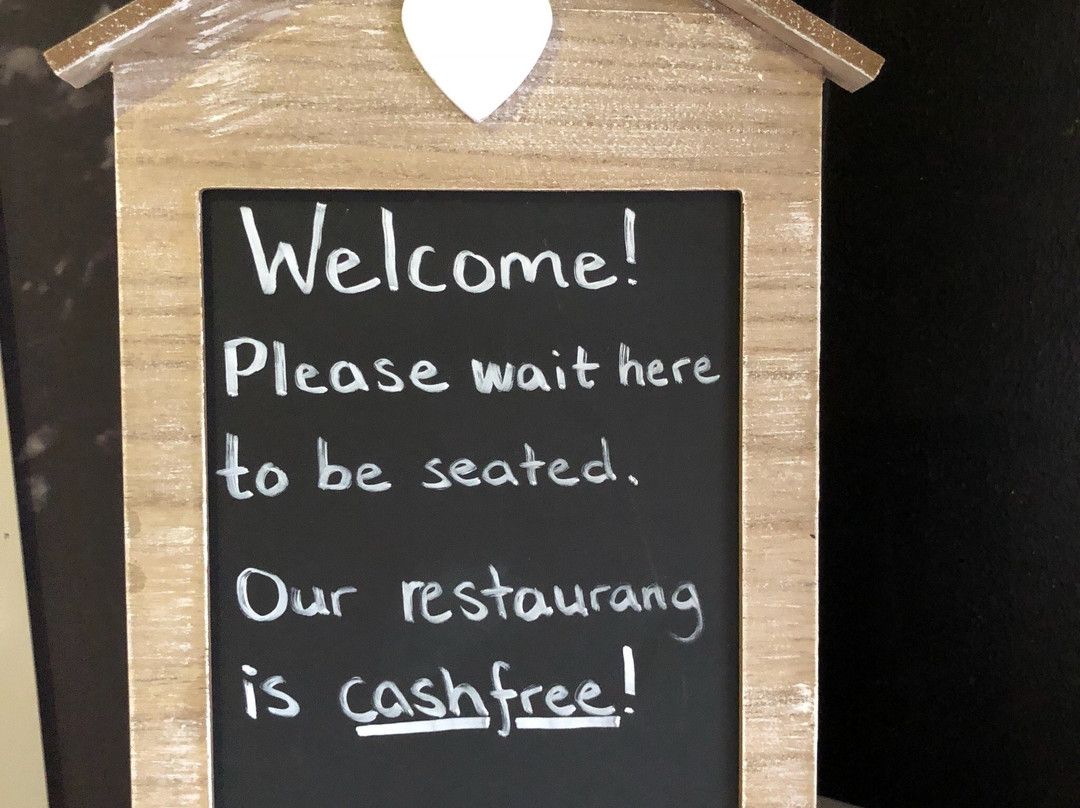 Welcome!
Please wait here
to be seated.
Our restaurang
is cashfree!